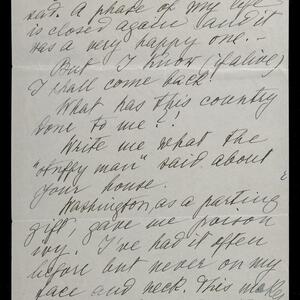 sad. A phase of my life
is closed again and it
was a very happy one. –
But I know (if alive)
I shall come back!
What has this country
done to me?!
Write me what the
"stuffy man" said about
your house.
Washington, as a parting
gift gave me poison
ivy. I've had it often
before but never on my
face and neck. This makes